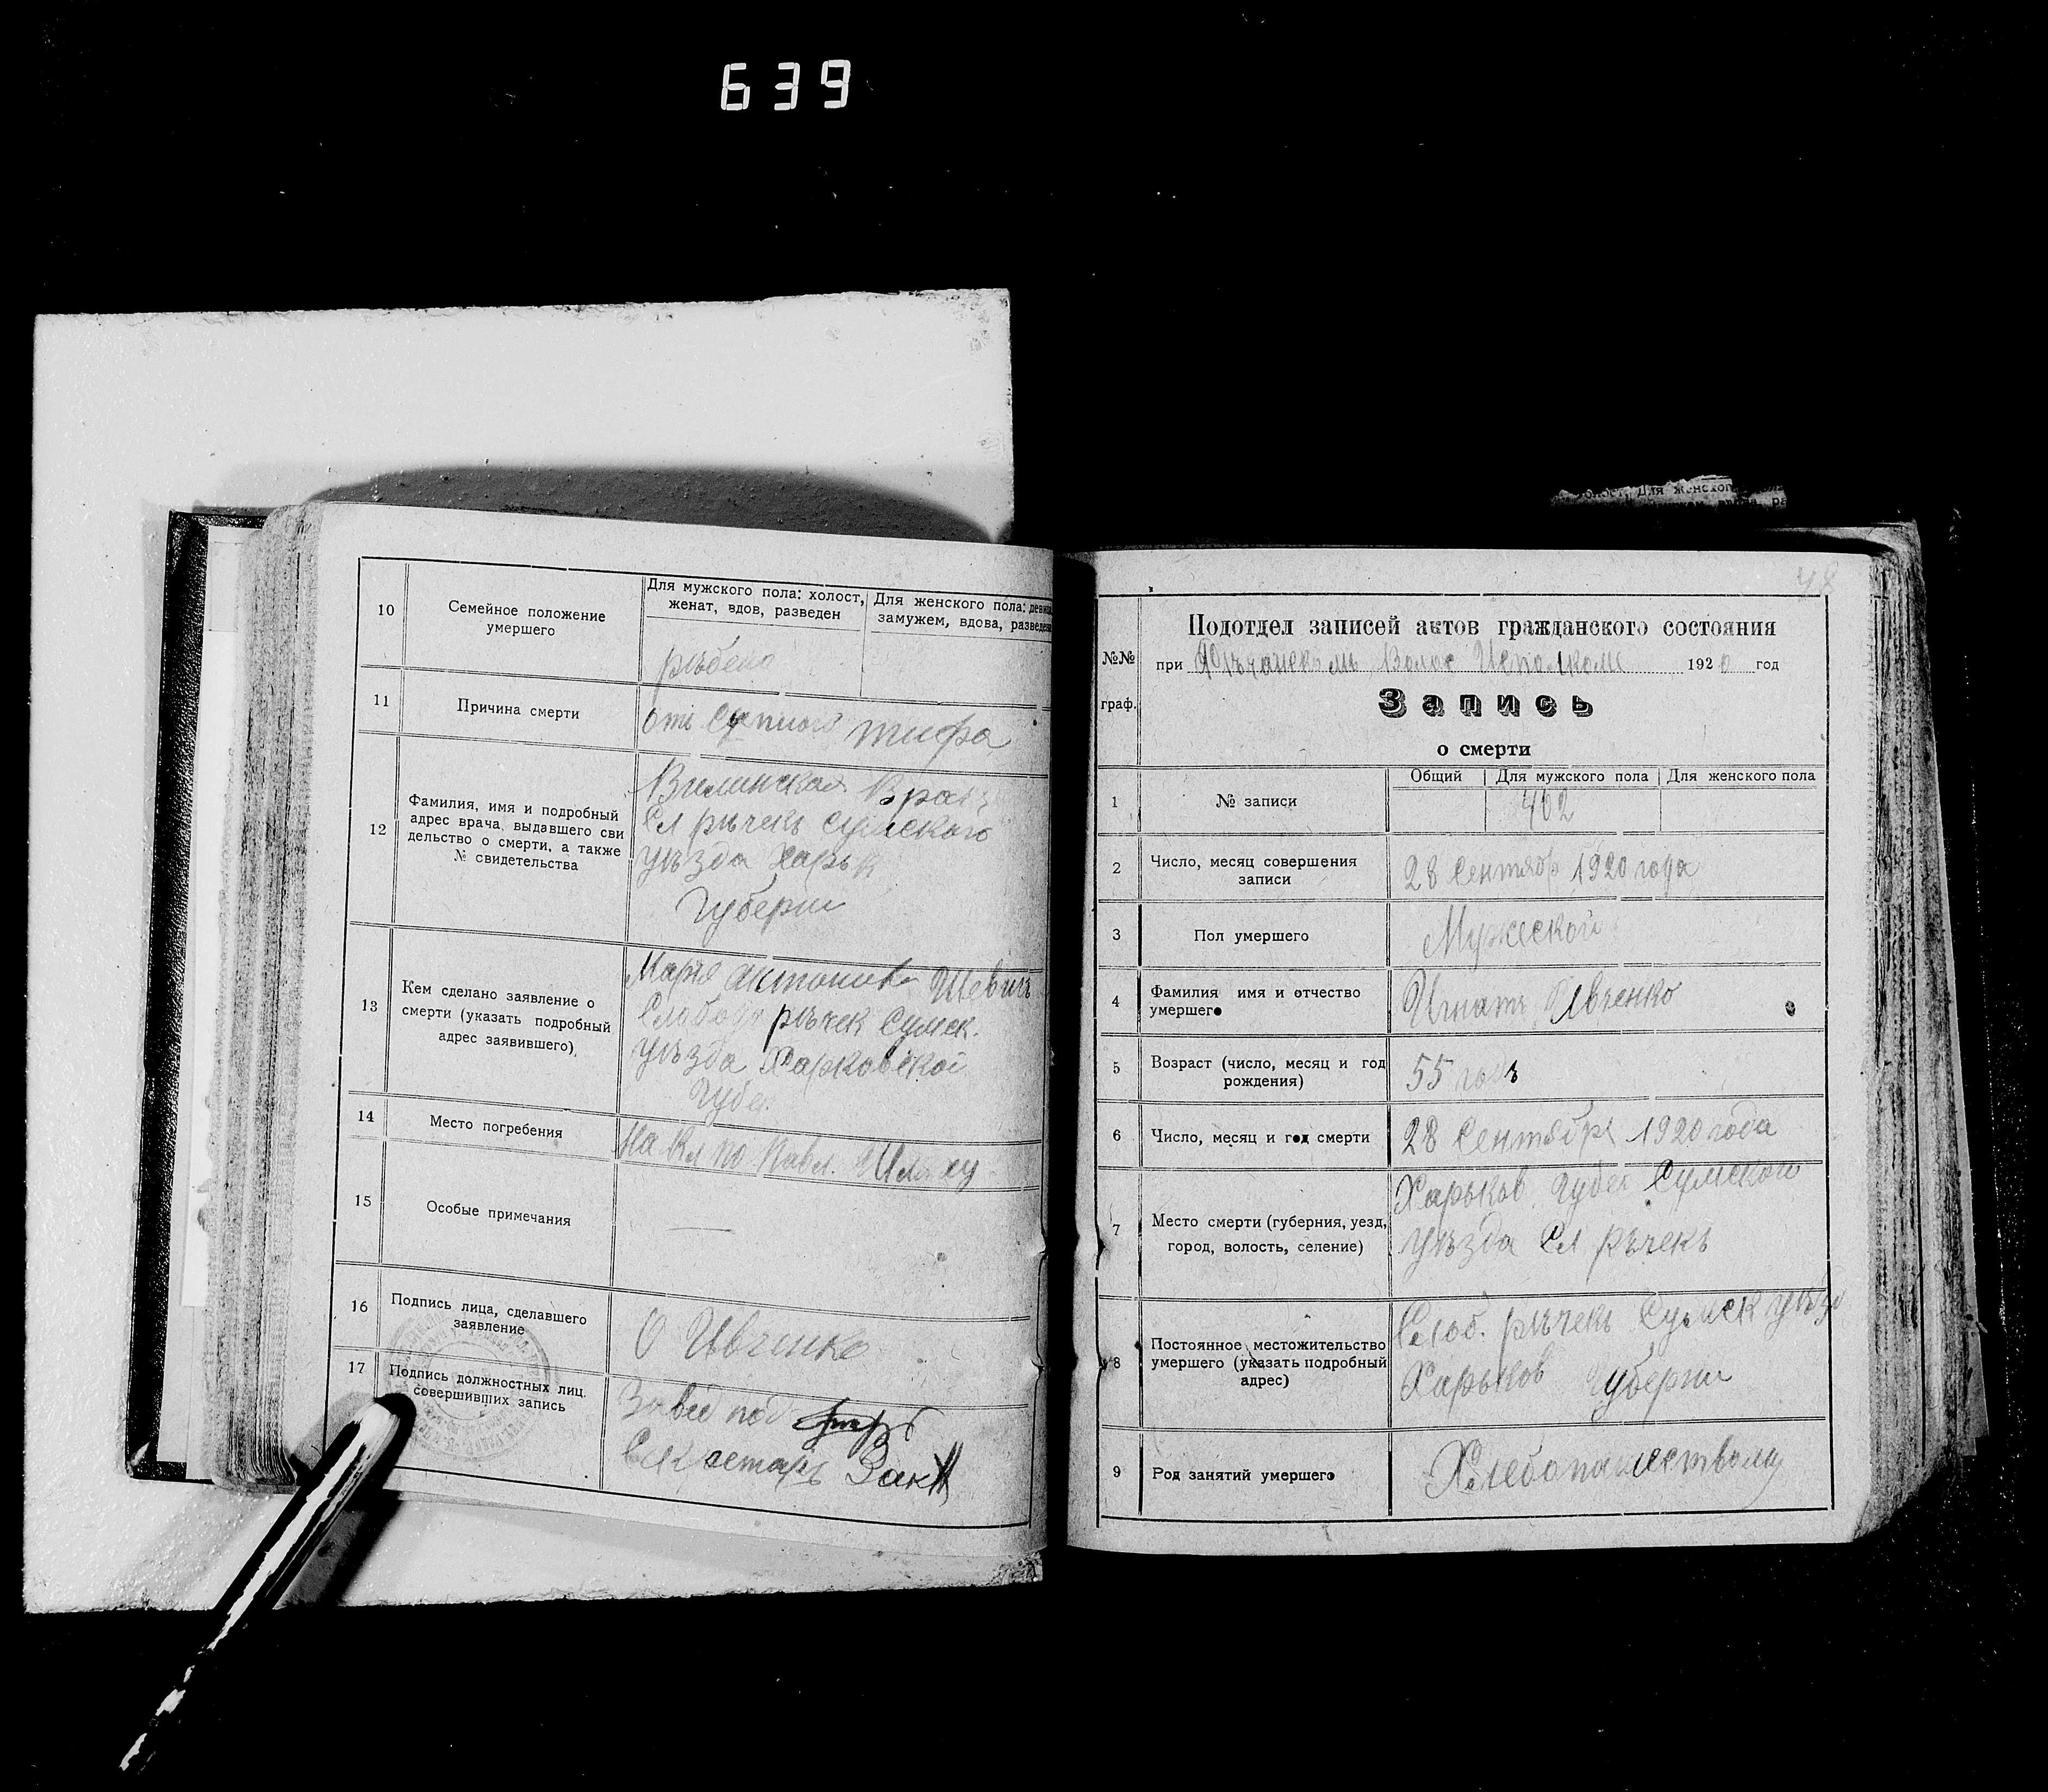 639
10
Семейное положение
умершего
Для мужского пола: холост,
женат, вдов, разведен
Для женского пола: девица
замужем, вдова, разведена
11
Причина смерти
отъ тифа
12
Фамилия, имя и подробный
адрес врача, выдавшего сви
детельство о смерти, а также
№ свидетельства
Сл рѣчекъ Сумского
уѣзда Харьк
Губерни
13
Кем сделано заявление о
смерти (указать подробный
адрес заявившего)
рѣчек Сумск.
уѣзда Харковской
Губер.
14
Место погребения
На Кл по Павл. Шляху
15
Особые примечания
16
Подпись лица, сделавшего
заявление
17
Подпись должностных лиц.
совершивших запись
Завед под
Секретарь
для женского
№№
граф.
Подотдел записей актов гражданского состояния
при Волос Исполкоме 1920 год
Запись
о смерти
1
№ записи
Общий
Для мужского пола
Для женского пола
402
2
Число, месяц совершения
записи
28 Сентябр 1920 года
3
Пол умершего
Мужеской
4
Фамилия имя и отчество
умершего
Игнатъ Ивченко
5
Возраст (число, месяц и год
рождения)
55 годъ
6
Число, месяц и год смерти
28 Сентября 1920 года
7
Место смерти (губерния, уезд,
город, волость, селение)
Харьков. Губер Сумского
уѣзда Сл рѣчекъ
8
Постоянное местожительство
умершего (указать подробный
адрес)
Слоб. рѣчекъ Сумск уѣзд
Харьков Губерни
9
Род занятий умершего
Хлебопашествому